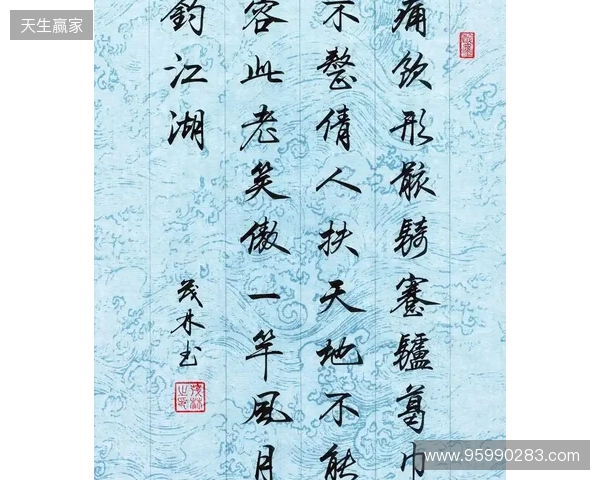 天生赢家
痛飲形骸騎蹇驢葛巾
不整倩人扶天地不能
容此老笑傲一竿風月
釣江湖
茂林书
www.95990283.com